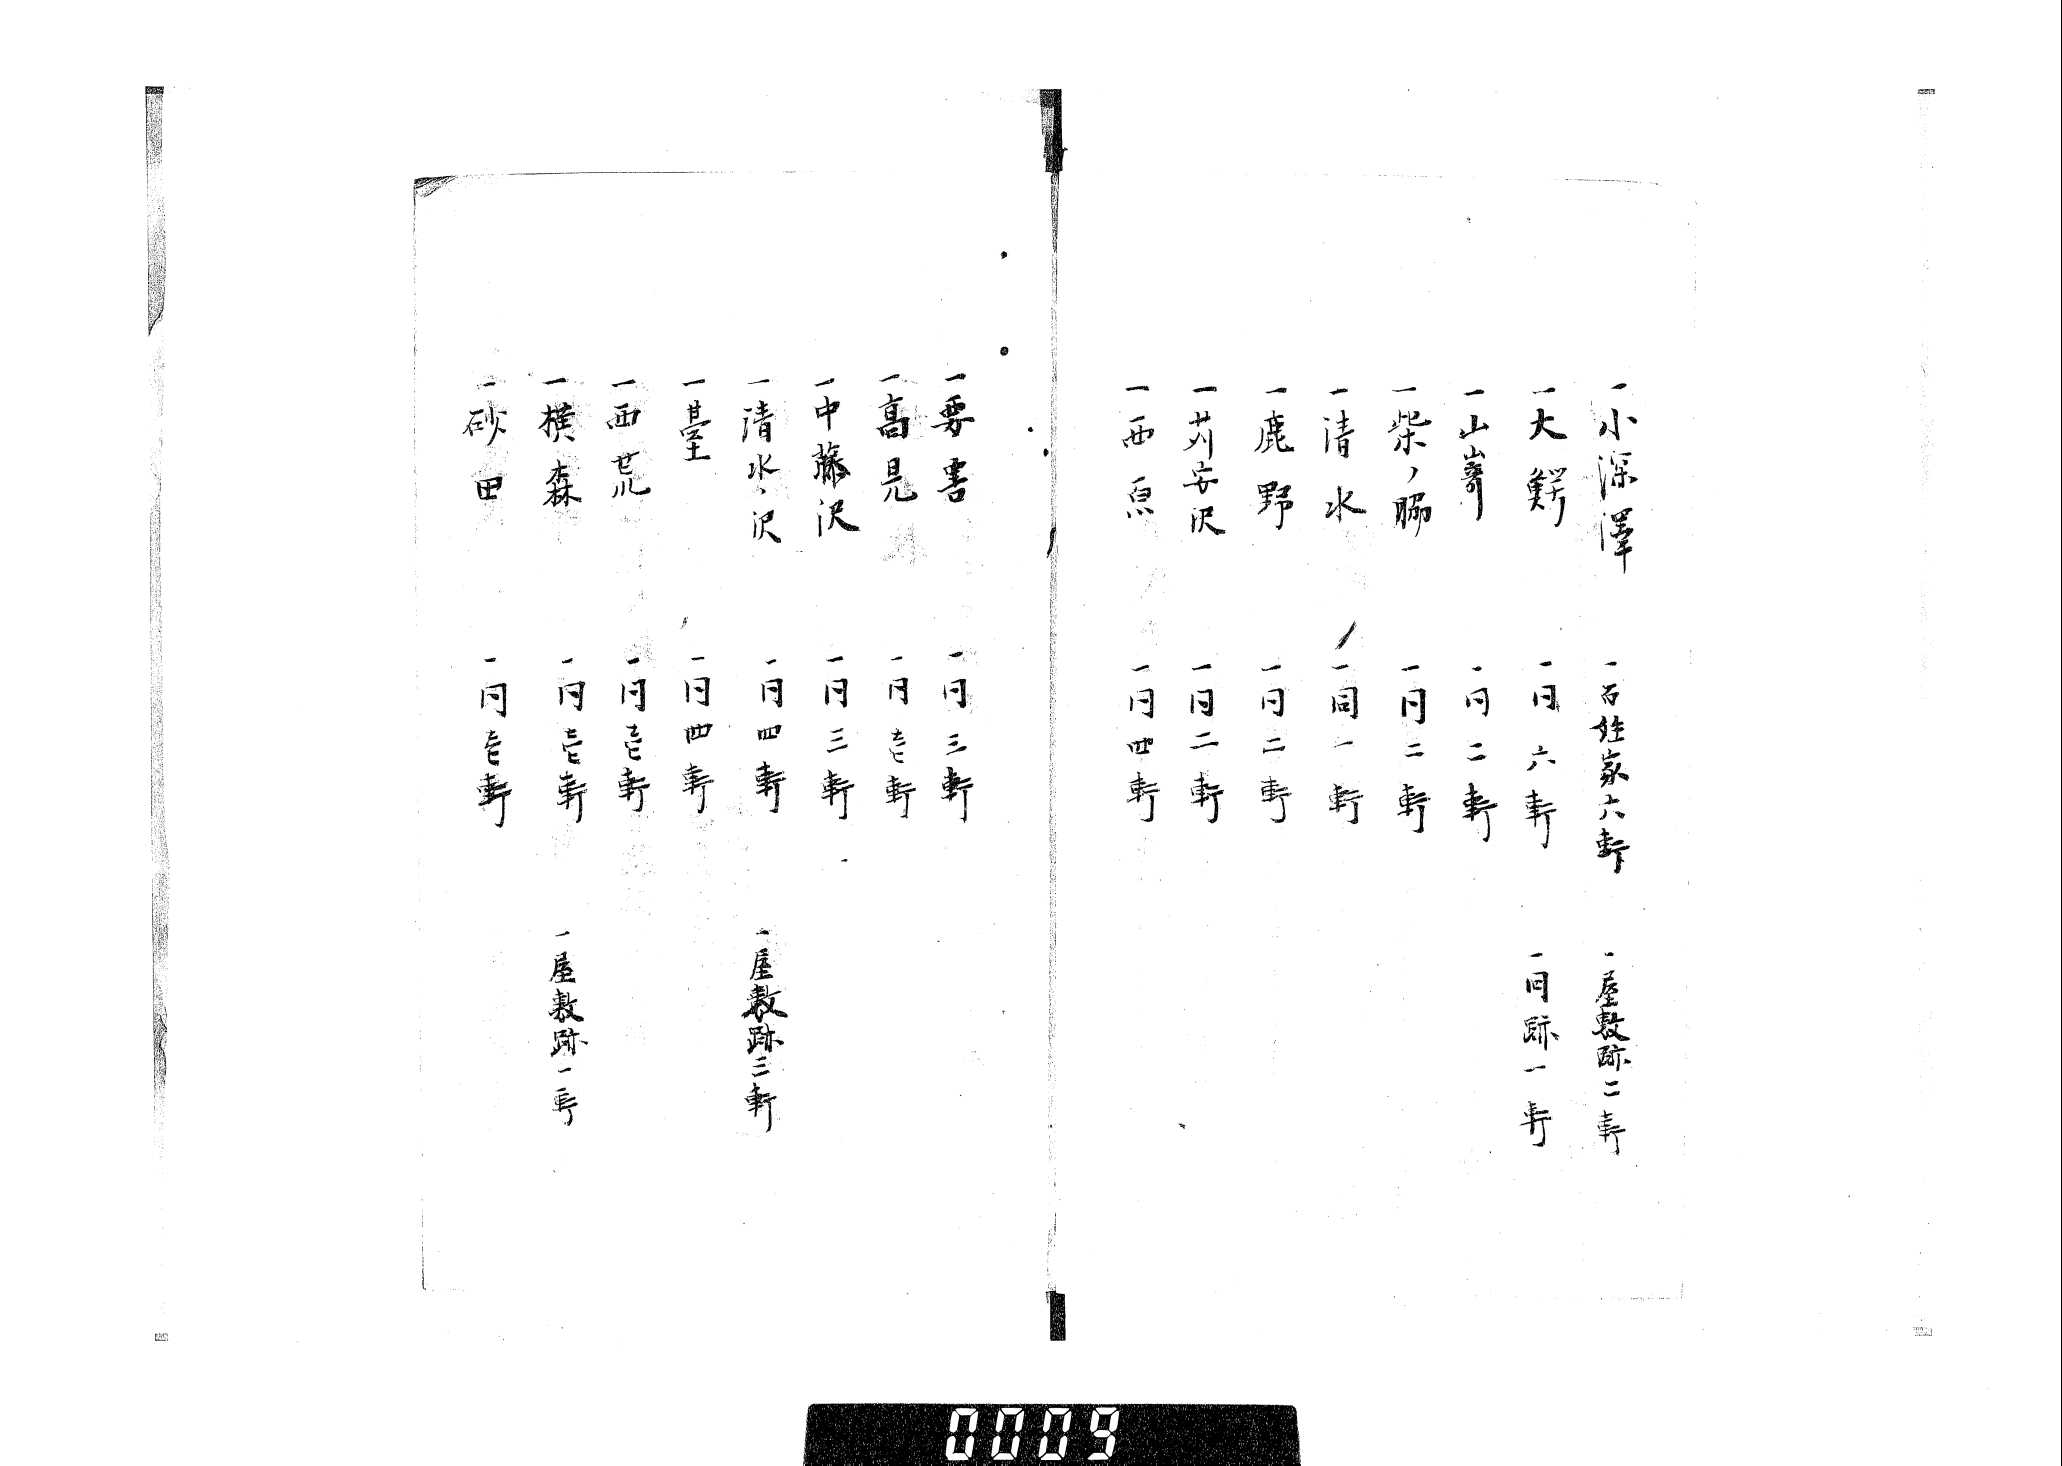 一小深澤 一百姓家六軒 一屋敷跡二軒
一大鰐 一同六軒 一同跡一軒
一山嵜 一同二軒
一柴ノ脇 一同二軒
一清水 一同一軒
一鹿野 一同二軒
一苅安沢 一同二軒
一西原 一同四軒
一要害 一同三軒
一高見 一同壱軒
一中藤沢 一同三軒
一清水ノ沢 一同四軒 一屋敷跡三軒
一臺 一同四軒
一西荒 一同壱軒
一横森 一同壱軒 一屋敷跡一軒
一砂田 一同壱軒
0009